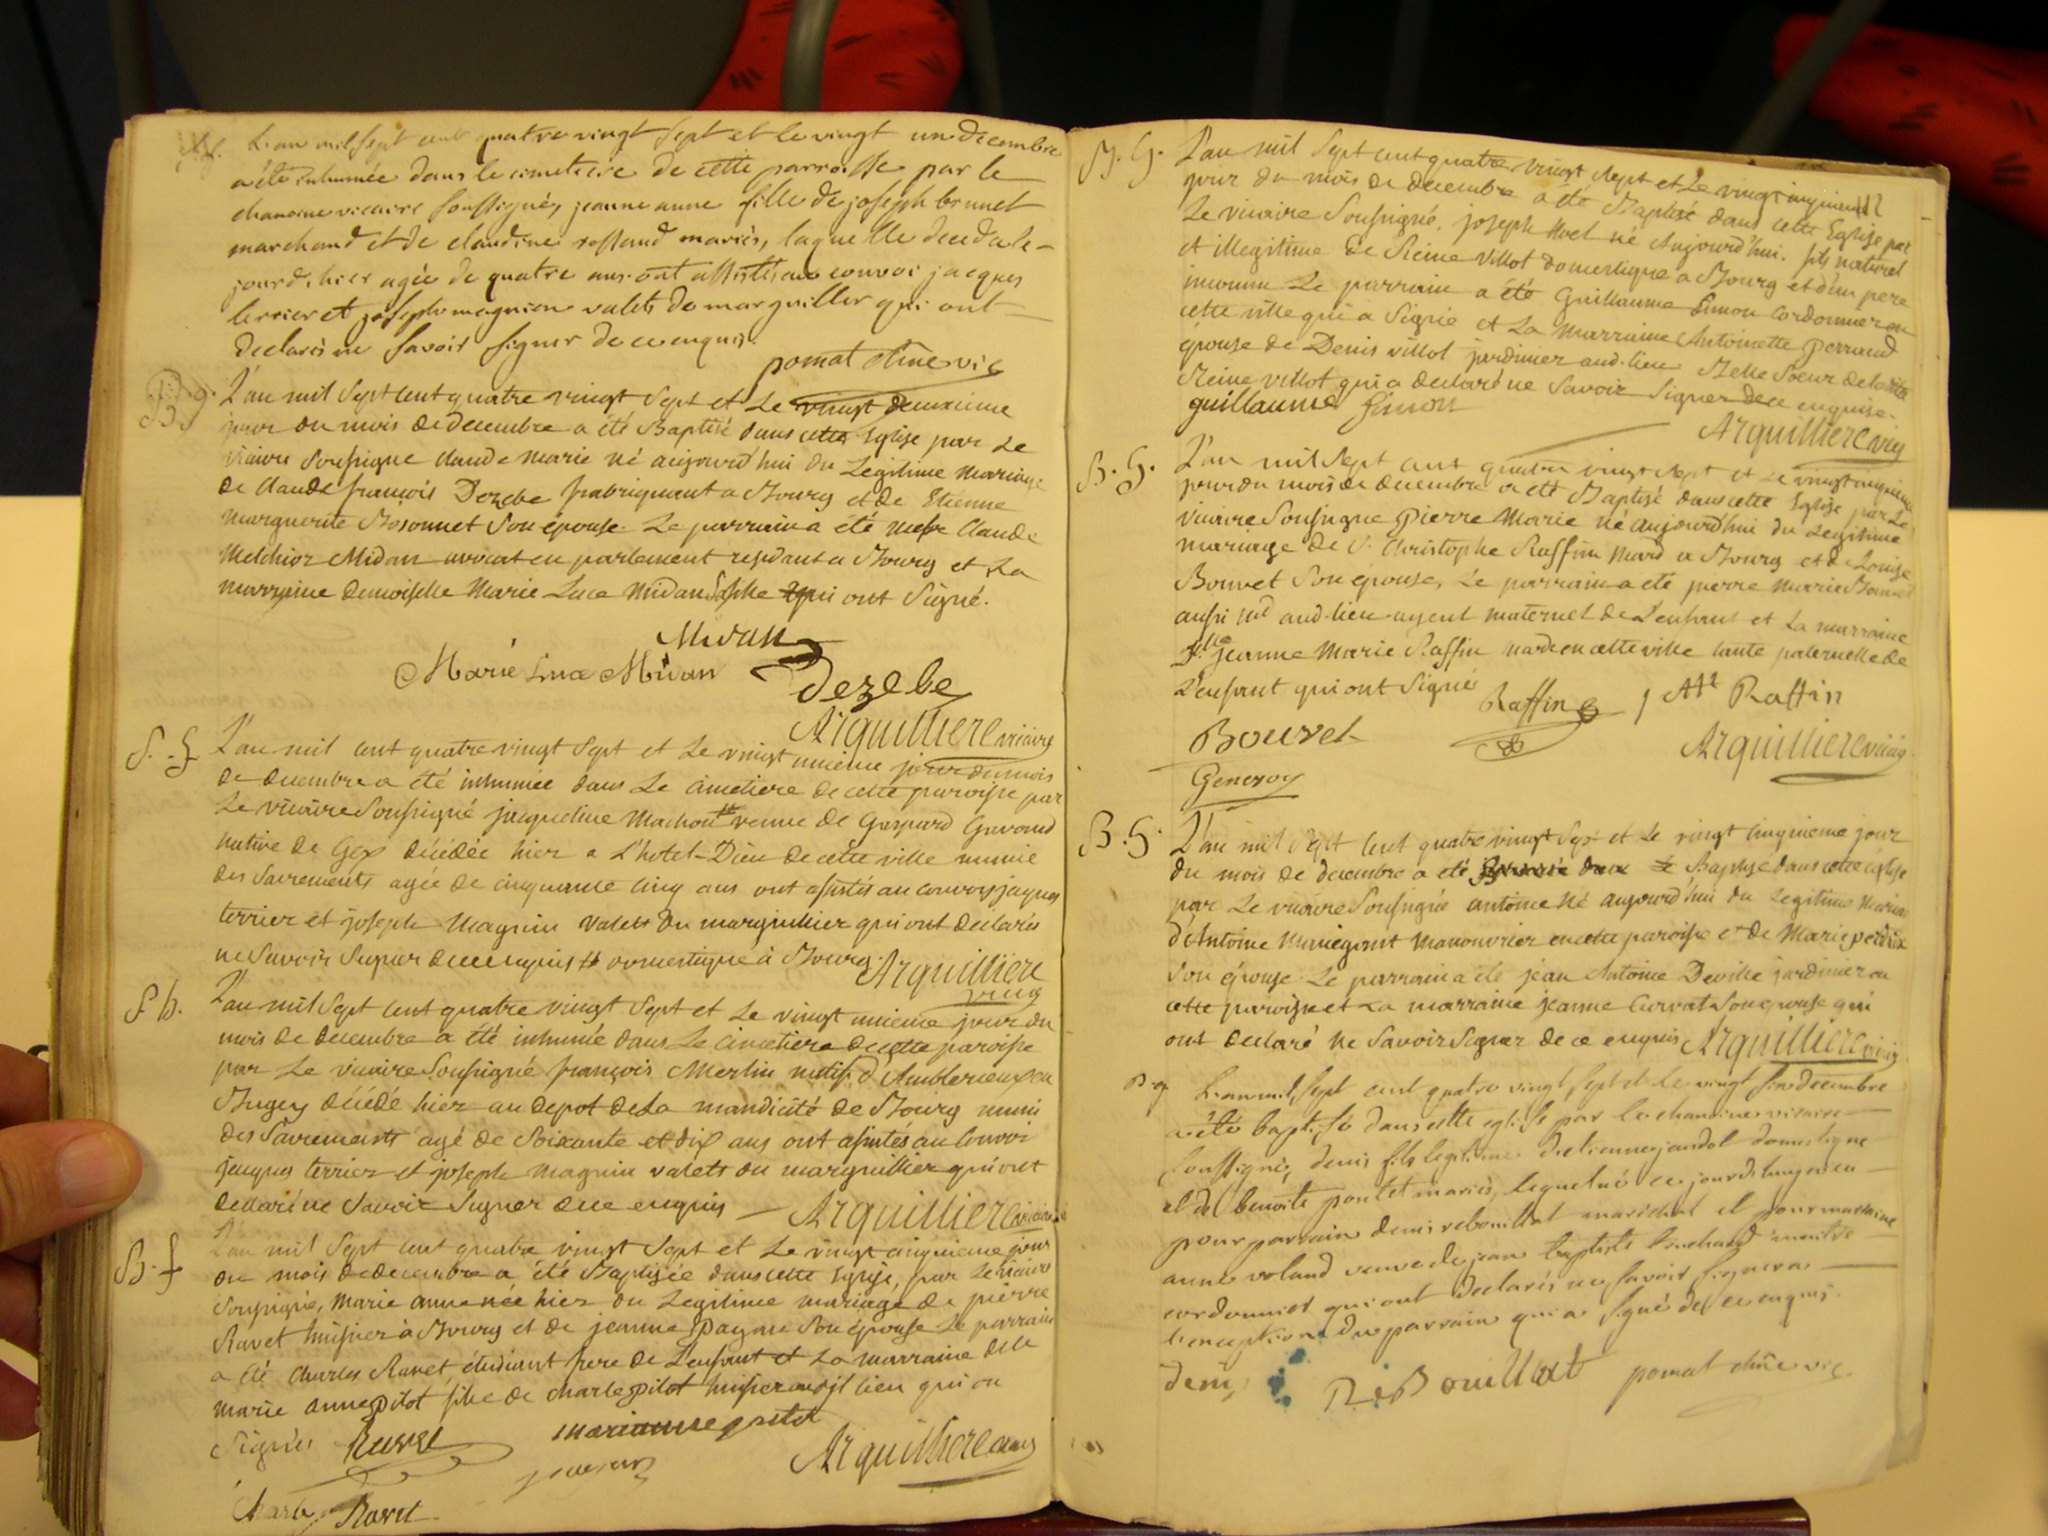 L'an mil sept cent quatre vingt sept et le vingt un decembre
a été inhumée dans le cimetiere de cette parroisse par le
chanoine vicaire soussigné, jeanne anne fille de joseph brunet
marchand et de claudine rolland mariés, laquelle decedale-
jourd'hier agée de quatre ans. ont assisté au convoi jacques
terrier et joseph magnien valets de marguiller qui ont
declarés ne savoir signer de ce enquis.
pomat chne vic
B g. L'an mil sept cent quatre vingt sept et le vingt deuxieme
jour du mois de decembre a été Baptisé dans cette Eglise par Le
vicaire soussigné claude marie né aujourd'hui du Legitime mariage
de Claude françois Dezebe fabriquant a Bourg et de Etienne
marguerite Bosonnet son épouse. Le parrain a été Claude
Melchior Midan avocat en parlement residant a Bourg et La
marraine demoiselle Marie Luce Midan qui ont signé.
Midan
Marie Luce Midan
Dezebe
Arquilliere vicaire
S. f L'an mil cent quatre vingt sept et Le vingt unieme jour du mois
de decembre a été inhumée dans Le cimetiere de cette paroisse par
Le vicaire soussigné jacqueline Machon # veuve de Gaspard Gavand
native de Gex décédée hier a L'hotel-Dieu de cette ville munie
des Sacrements agée de cinquante cinq ans ont assistés au convoy jaques
terrier et joseph Magnin valets du marguillier qui ont declarés
ne Savoir Signer de ce enquis # domestique à Bourg. Arquilliere
vicaire
S h. L'an mil sept cent quatre vingt sept et Le vingt unieme jour du
mois de decembre a été inhumée dans Le cimetiere de cette paroisse
par Le vicaire soussigné françois Merlin natif d'Amblerieux en
Bugey décédé hier au depot de La mandicité de Bourg muni
des Sacrements agé de Soixante et dix ans ont assistés au Convoi
jacques terrier et joseph magnin valets du marguillier qui ont
declaré ne Savoir Signer de ce enquis — Arquilliere vicaire
B. f L'an mil sept cent quatre vingt sept et Le vingt cinquieme jour
du mois de decembre a été Baptisée dans cette Eglise, par Le vicaire
soussigné, marie anne née hier du Legitime mariage de pierre
Ravet huissier à Bourg et de jeanne Pagan son épouse Le parrain
a été Charles Ravet étudiant frere de L'enfant et La marraine delle
marie anne pitot fille de charle pitot huissier audit lieu qui on
Signés Ravet marianne pitot
Arquilliere vicaire
Charle Ravet
B. G. L'an mil sept cent quatre vingt sept et Le vingt cinquieme
jour du mois de decembre a été Baptisé dans cette Eglise par
Le vicaire soussigné, joseph Noel né Aujourd'hui. fils naturel
et illegitime de Reine Villot domestique a Bourg et d'un pere
inconnu Le parrain a été Guillaume Simon Cordonnier en
cette ville qui a Signé et La Marraine Antoinette Perraud
épouse de Denis villot jardinier aud. lieu Belle Soeur de ladite
Reine villot qui a declaré ne Savoir Signer de ce enquise.
guillaume simon
Arquilliere vic
B. G. L'an mil sept cent quatre vingt sept et Le vingt cinquieme
jour du mois de decembre a été Baptisé dans cette Eglise par Le
vicaire soussigné Pierre Marie né aujourd'hui du Legitime
mariage de S. Christophe Raffin Mard a Bourg et de Louise
Bouvet son épouse, Le parrain a été pierre marie Bouvet
aussi Md aud. lieu ayeul maternel de L'enfant et La marraine
Jeanne Marie Raffin en cette ville tante paternelle de
L'enfant qui ont signé
Raffin
J M Raffin
Bouvet
Arquilliere vicaire
Genevoy
B. G. L'an mil sept cent quatre vingt Sept et Le vingt cinquieme jour
du mois de decembre a été Baptisé dans cette église
par Le vicaire soussigné antoine né aujourd'hui du Legitime mariage
d'Antoine manouvrier en cette paroisse et de Marie perdrix
son épouse Le parrain a été jean Antoine Deville jardinier en
cette paroisse et La marraine jeanne Corvat son epouse qui
ont declaré Ne Savoir Signer de ce enquis Arquilliere vicaire
B. g. L'an mil, sept cent quatre vingt, sept et le vingt six decembre
a été baptisé dans cette eglise par le chanoine vicaire
soussigné, denis fils legitime d'etienne jandot domestique
et de benoite pontet mariés, lequel né ce jourd'huy a eu
pour parrain denis rebouillat marechal et pour marraine
anne voland veuve de jean baptiste bouchard maitre
cordonnier qui ont declarés ne savoir signer a
l'exception du parrain qui a signé de ce enquis.
deni,
ReBouillat
pomat chne vic.